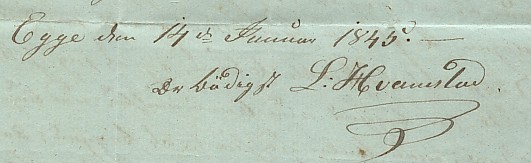 Egge den 14de Januar 1845. —
Ærbødigst L: Hvamstad.